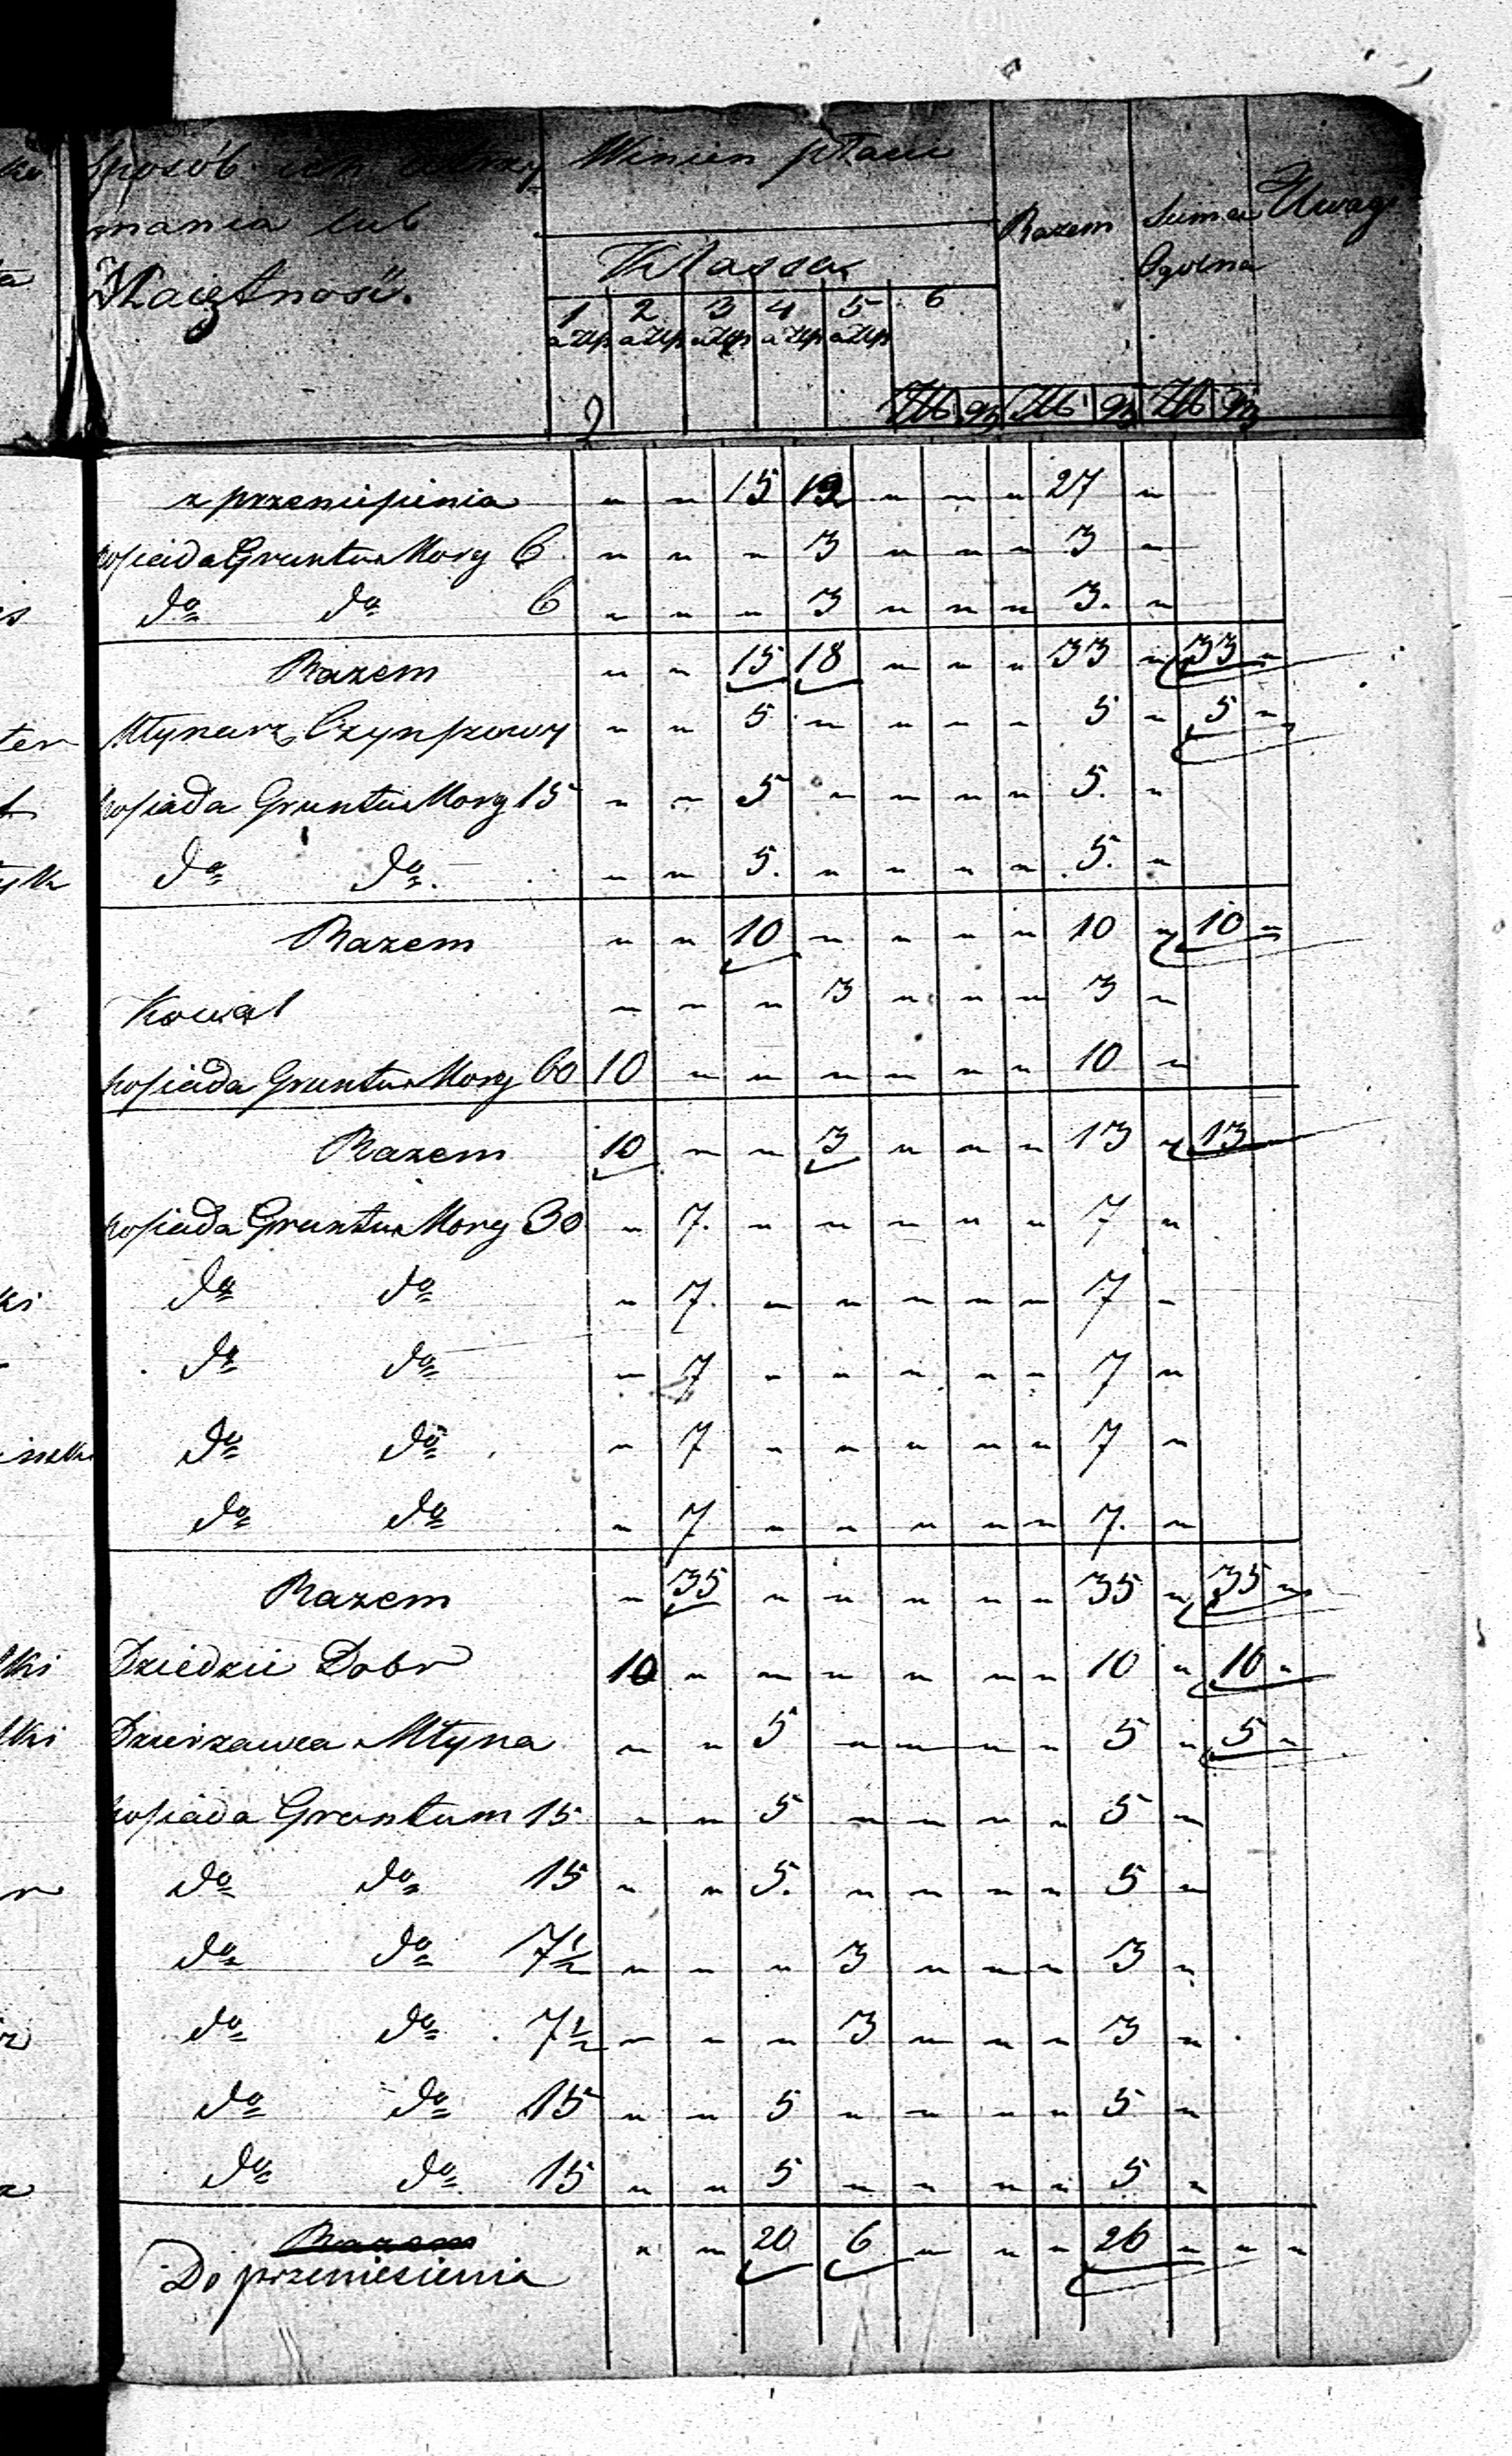 Sposób ich utrzy Winien płacić
mania lub
Maiętności. Klassa Razem Suma Ogólna Uwagi
1 2 3 4 5 6
a Złp a Złp a Złp a Złp a Złp
Zł gr Zł gr Zł gr
z przeniesienia " " 15 12 " " " 27 "
posiada Gruntu Morg 6 " " " 3 " " " 3 "
do do 6 " " " 3 " " " 3. "
Razem " " 15 18 " " " 33 " 33 "
Młynarz Czynszowy " " 5 " " " " 5 " 5 "
posiada Gruntu Morg 15 " " 5 " " " " 5. "
do do " " 5. " " " " 5. "
Razem " " 10 " " " " 10 " 10 "
Kowal " " " 3 " " " 3 "
posiada Gruntu Morg 60 10 " " " " " " 10 "
Razem 10 " " 3 " " " 13 " 13
posiada Gruntu Morg 30 " 7. " " " " " 7 "
do do " 7. " " " " " 7 "
do do " 7 " " " " " 7 "
do do " 7 " " " " " 7 "
do do " 7 " " " " " 7. "
Razem " 35 " " " " " 35 " 35 "
Dziedzic Dobr 10 " " " " " " 10 " 10 "
Dzierzawca Młyna " " 5 " " " " 5 " 5 "
posiada Gruntu m 15 " " 5 " " " " 5 "
do do 15 " " 5. " " " " 5 "
do do 7½ " " " 3 " " " 3 "
do do 7½ " " " 3 " " " 3 "
do do 15 " " 5 " " " " 5 "
do do 15 " " 5 " " " " 5 "
Razem
Do przeniesienia " " 20 6 " " " 26 " " "